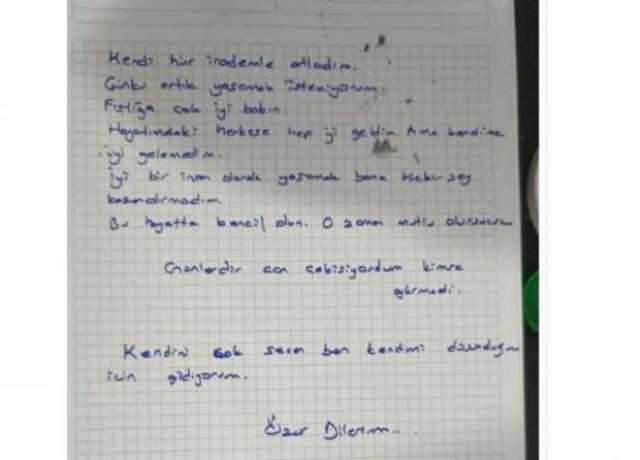 Kendi hür irademle atladım.
Çünkü artık yaşamak istemiyorum.
Fıstığa çok iyi bakın.
Hayatındaki herkese hep iyi geldim Ama kendime
iyi gelemedim.
İyi bir insan olarak yaşamak bana hiçbir şey
kazandırmadım.
Bu hayatta bencil olun. O zaman mutlu olursunuz
Günlerdir can çekişiyordum kimse
görmedi.
Kendini çok seven ben kendimi
için gidiyorum.
Özür Dilerim...